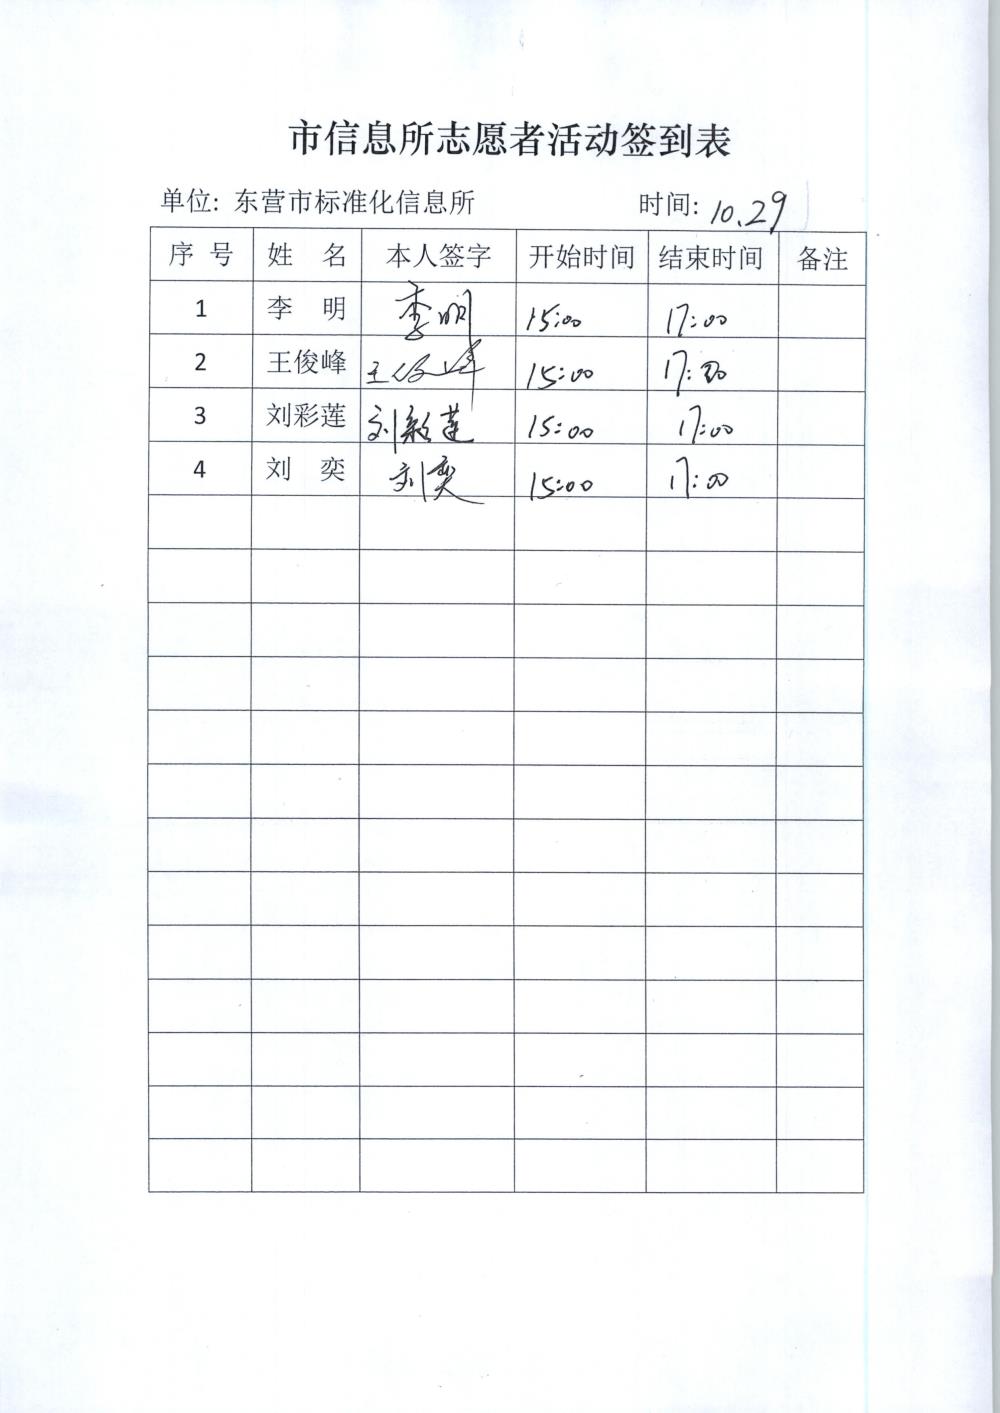 市信息所志愿者活动签到表
单位: 东营市标准化信息所 时间: 10.29
序 号 姓 名 本人签字 开始时间 结束时间 备注
1 李 明 李明 15:00 17:00
2 王俊峰 王俊峰 15:00 17:00
3 刘彩莲 刘彩莲 15:00 17:00
4 刘 奕 刘奕 15:00 17:00